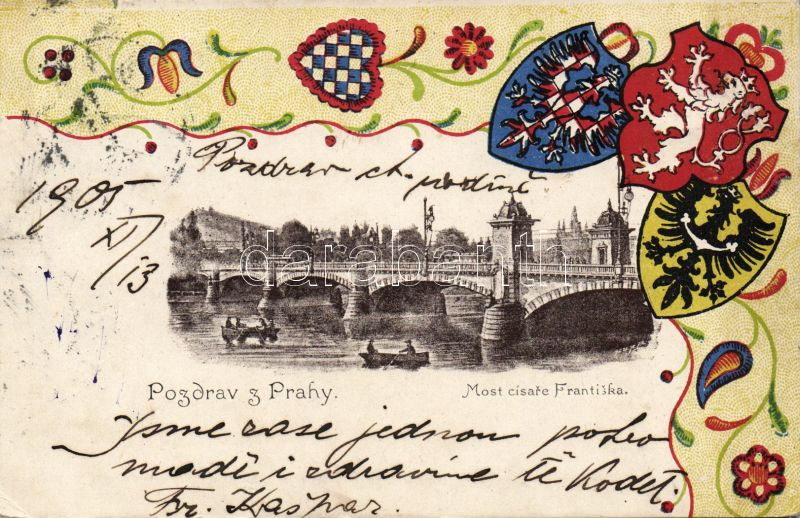 Pozdrav ct. rodině
1905
XI/13
darabanth
Pozdrav z Prahy.
Most císaře Františka.
Jsme zase jednou pohro
madě i zdravíme tě
Fr. Kašpar.